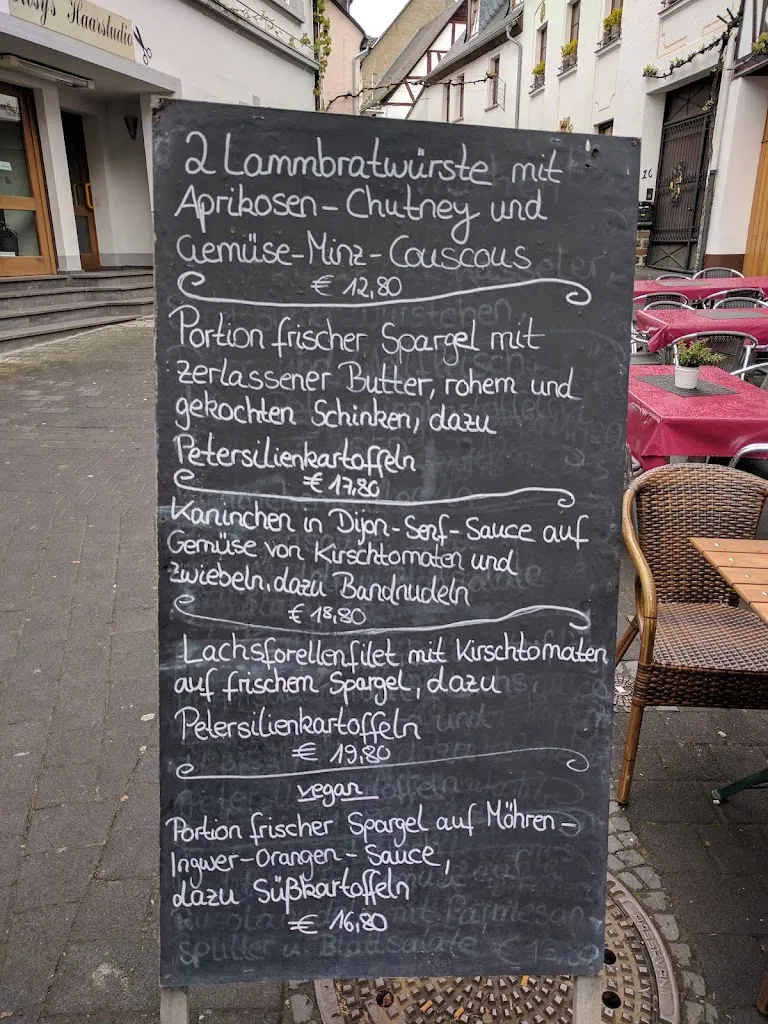 Haarstudio
2 Lammbratwürste mit
Aprikosen-Chutney und
Gemüse-Minz-Couscous
€ 12,80
Portion frischer Spargel mit
zerlassener Butter, rohem und
gekochten Schinken, dazu
Petersilienkartoffeln
€ 17,80
Kaninchen in Dijon-Senf-Sauce auf
Gemüse von Kirschtomaten und
Zwiebeln, dazu Bandnudeln
€ 18,80
Lachsforellenfilet mit Kirschtomaten
auf frischem Spargel, dazu
Petersilienkartoffeln
€ 19,80
vegan
Portion frischer Spargel auf Möhren-
Ingwer-Orangen-Sauce,
dazu Süßkartoffeln
€ 16,80
mit Parmesan
splitter u. Blattsalate